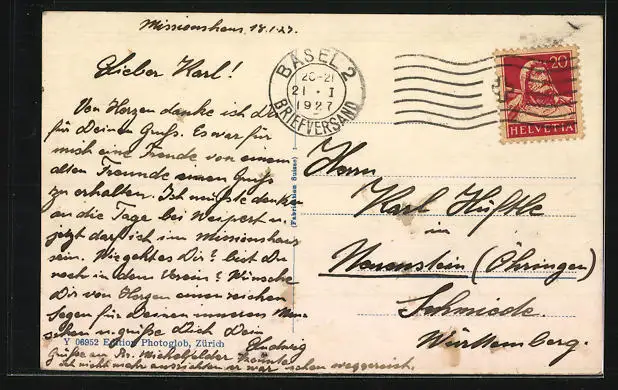 Missionshaus, 18.1.27.
Lieber Karl!
Von Herzen danke ich Dir
für Deinen Gruß. Es war für
mich eine Freude von einem
alten Freunde einen Gruß
zu erhalten. Ich mußte denken
an die Tage bei u.
jetzt darf ich im Missionshaus
sein. Wie geht es Dir? bist Du
noch in dem Verein? Wünsche
Dir von Herzen einen reichen
Segen für Deinen inneren
u. grüße Dich Dein
Ludwig
Grüße an Br. Michelfelder
Ich nicht mehr er war schon weggereist.
BASEL 2
20-21
21·I
1927
BRIEFVERSAND
20
HELVETIA
(Fabrication Suisse)
Herrn
Karl
in
Neuenstein (Öhringen)
Schmiede
Württemberg.
Y 06952 Edition Photoglob, Zürich